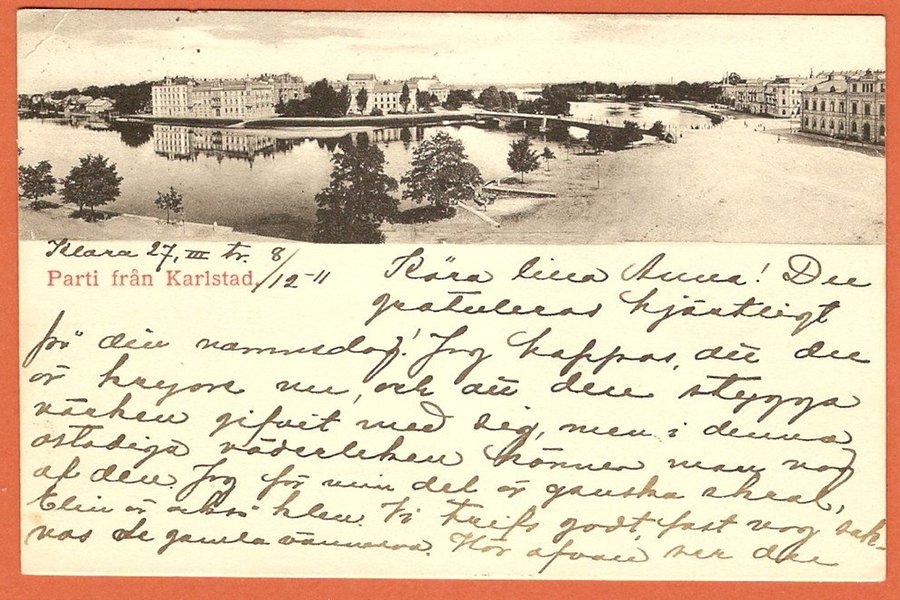 Klara 27, III tr. 8/12-11
Parti från Karlstad.
Kära lilla Anna! Du
gratuleras hjärtligt
för din namnsdag! Jag hoppas, att du
är kryare nu, och att den stygga
värken gifvit med sig, men i denna
ostadiga väderleken känner man nog
af den. Jag för min del är ganska skral,
Elin är också klen. Vi trifs godt, fast nog sak-
nas de gamla vännerna. Här ofvan ser du